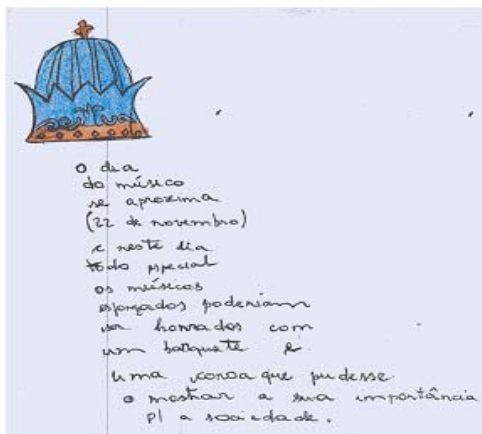 o dia
do músico
se aproxima
(22 de novembro)
e neste dia
todo especial
os músicos
esforçados poderiam
ser honrados com
um banquete e
uma coroa que pudesse
o mostrar a sua importância
p/ a sociedade.